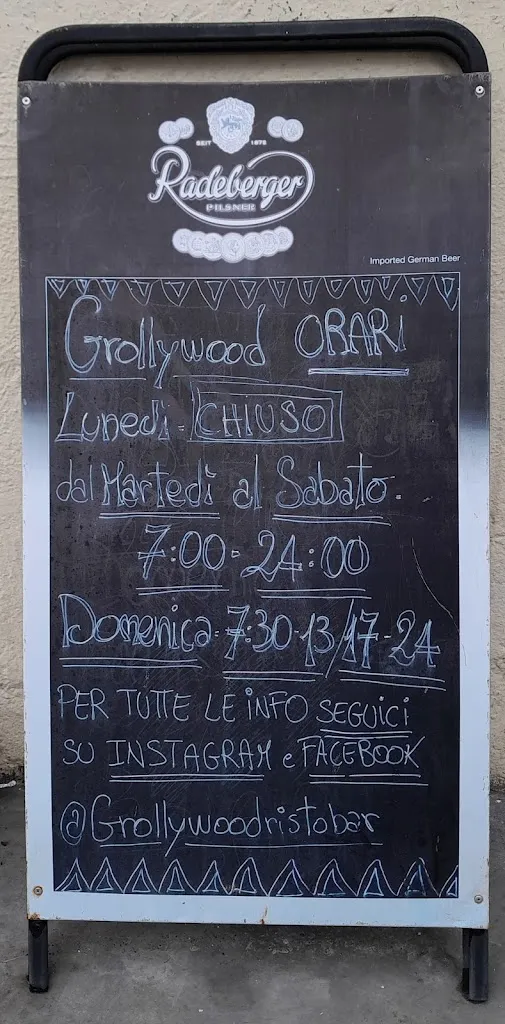 SEIT 1872
Radeberger
PILSNER
Imported German Beer
Grollywood ORARi
Lunedi - CHIUSO
dal Martedì al Sabato.
7:00 - 24:00
Domenica - 7:30-13/17-24
PER TUTTE LE iNFO SEGUiCi
SU INSTAGRAM e FACEBOOK
@Grollywoodristobar